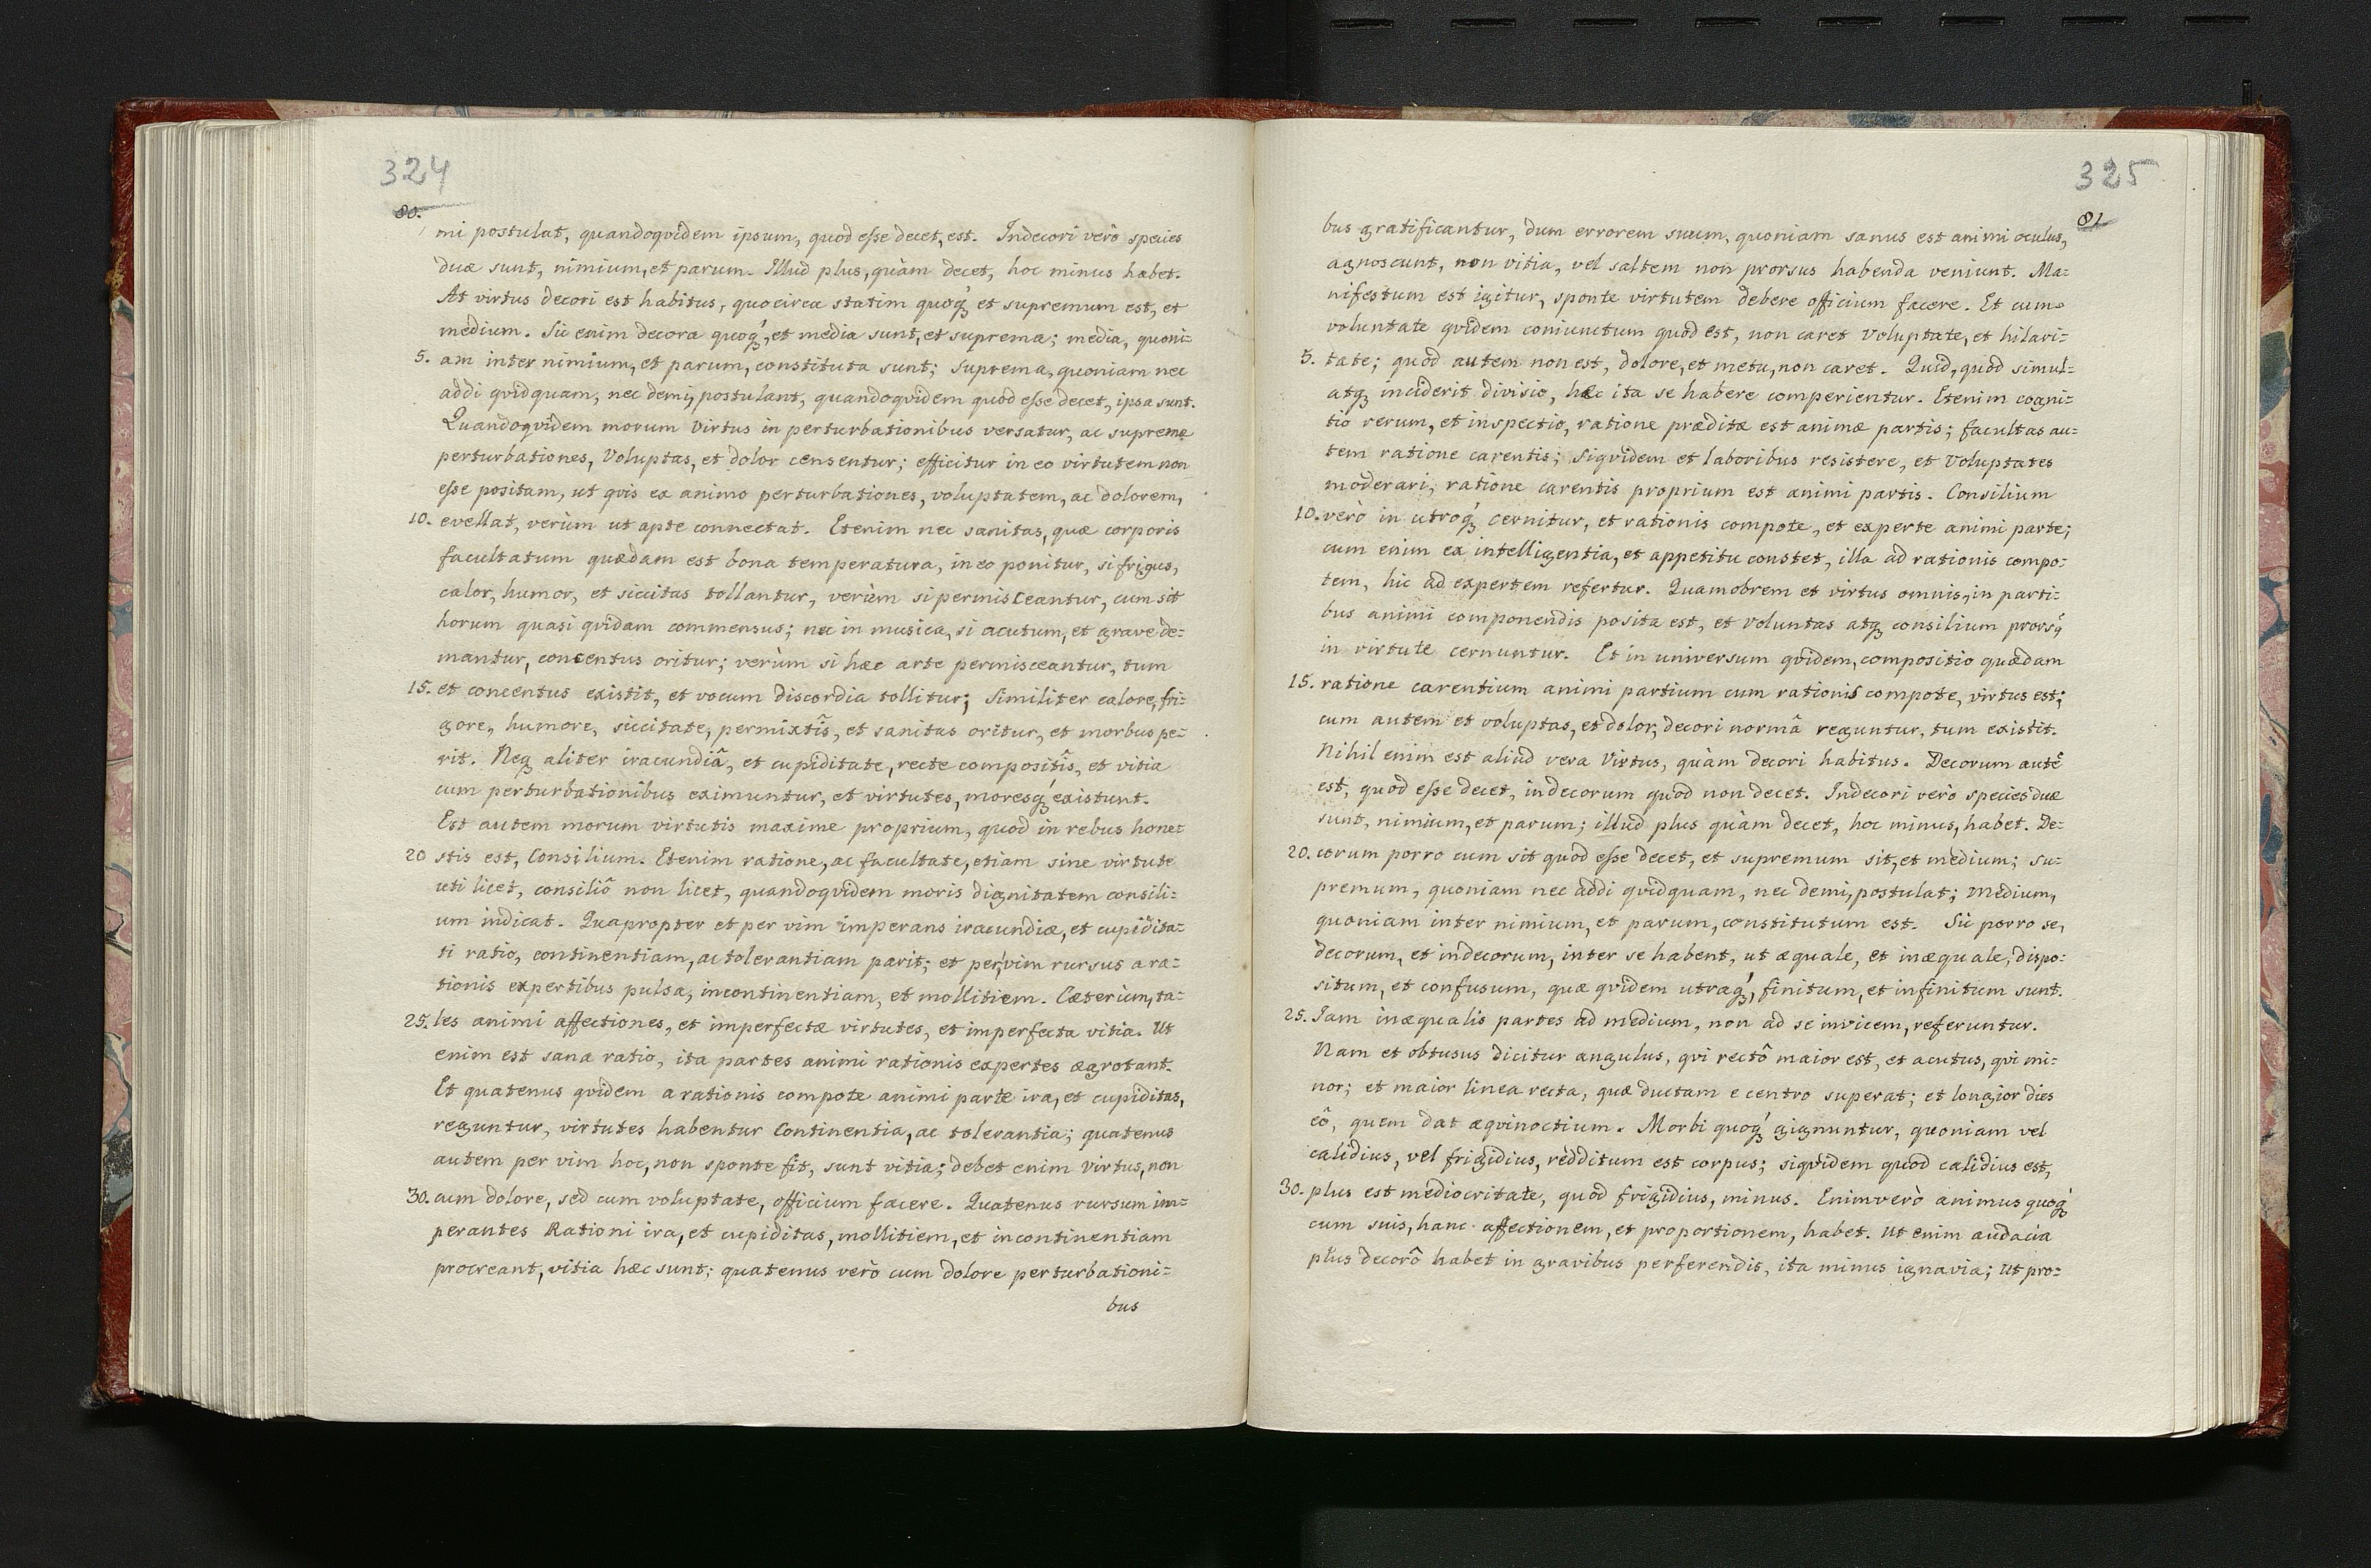 324
80.
mi postulat, quandoqvidem ipsum, quod esse decet, est. Indecori verò species
duæ sunt, nimium, et parum. Illud plus, quàm decet, hoc minus habet.
At virtus decori est habitus, quocirca statim quoq́ et supremum est, et
medium. Sic enim decora quoq́, et media sunt, et suprema; media, quoni=
5. am inter nimium, et parum, constituta sunt; Suprema, quoniam nec
addi qvidquam, nec demi, postulant, quandoqvidem quod esse decet, ipsa sunt.
Quandoqvidem morum Virtus in perturbationibus versatur, ac supremæ
perturbationes, Voluptas, et dolor censentur; efficitur in eo virtutem non
esse positam, ut qvis ex animo perturbationes, voluptatem, ac dolorem,
10. evellat, verùm ut apte connectat. Etenim nec sanitas, quæ corporis
facultatum quædam est bona temperatura, in eo ponitur, si frigus,
calor, humor, et siccitas tollantur, verùm si permisceantur, cum sit
horum quasi qvidam commensus; nec in musica, si acutum, et grave de=
mantur, concentus oritur; verùm si hæc arte permisceantur, tum
15. et concentus existit, et vocum discordia tollitur; Similiter calore, fri=
gore, humore, siccitate, permixtîs, et sanitas oritur, et morbus pe=
rit. Neq aliter iracundiâ, et cupiditate, recte compositîs, et vitia
cum perturbationibus eximuntur, et virtutes, moresq́ existunt.
Est autem morum virtutis maxime proprium, quod in rebus hone=
20 stis est, Consilium. Etenim ratione, ac facultate, etiam sine virtute
uti licet, consiliô non licet, quandoqvidem moris dignitatem consili=
um indicat. Quapropter et per vim imperans iracundiæ, et cupidita=
ti ratio, continentiam, ac tolerantiam parit; et per vim rursus a ra=
tionis expertibus pulsa, incontinentiam, et mollitiem. Cæterùm, ta=
25. les animi affectiones, et imperfectæ virtutes, et imperfecta vitia. Ut
enim est sana ratio, ita partes animi rationis expertes ægrotant.
Et quatenus qvidem a rationis compote animi parte ira, et cupiditas,
reguntur, virtutes habentur Continentia, ac tolerantia; quatenus
autem per vim hoc, non sponte fit, sunt vitia; debet enim virtus, non
30. cum dolore, sed cum voluptate, officium facere. Quatenus rursum im=
perantes Rationi ira, et cupiditas, mollitiem, et incontinentiam
procreant, vitia hæc sunt; quatenus verò cum dolore perturbationi=
bus
325
81
bus gratificantur, dum errorem suum, quoniam sanus est animi oculus,
agnoscunt, non vitia, vel saltem non prorsus habenda veniunt. Ma=
nifestum est igitur, sponte virtutem debere officium facere. Et cum
voluntate qvidem coniunctum quod est, non caret voluptate, et hilari=
5. tate; quod autem non est, dolore, et metu, non caret. Quid, quòd simul=
atq inciderit divisio, hæc ita se habere comperientur. Etenim cogni=
tio rerum, et inspectio, ratione præditæ est animæ partis; facultas au=
tem ratione carentis; Siqvidem et laboribus resistere, et Voluptates
moderari, ratione carentis proprium est animi partis. Consilium
10. verò in utroq́ cernitur, et rationis compote, et experte animi parte;
cum enim ex intelligentia, et appetitu constet, illa ad rationis compo=
tem, hic ad expertem refertur. Quamobrem et virtus omnis, in parti=
bus animi componendis posita est, et voluntas atq consilium prorsq́
in virtute cernuntur. Et in universum qvidem, compositio quædam
15. ratione carentium animi partium cum rationis compote, virtus est;
cum autem et voluptas, et dolor, decori normâ reguntur, tum existit.
Nihil enim est aliud vera Virtus, quàm decori habitus. Decorum autẽ
est, quod esse decet, indecorum quod non decet. Indecori verò species duæ
sunt, nimium, et parum; illud plus quàm decet, hoc minus, habet. De=
20. corum porro cum sit quod esse decet, et supremum sit, et medium; su=
premum, quoniam nec addi qvidquam, nec demi, postulat; Medium,
quoniam inter nimium, et parum, constitutum est. Sic porro se,
decorum, et indecorum, inter se habent, ut æquale, et inæquale, dispo=
situm, et confusum, quæ qvidem utraq́, finitum, et infinitum sunt.
25. Iam inæqualis partes ad medium, non ad se invicem, referuntur.
Nam et obtusus dicitur angulus, qvi rectô maior est, et acutus, qvi mi=
nor; et maior linea recta, quæ ductam e centro superat; et longior dies
eô, quem dat æqvinoctium. Morbi quoq́ gignuntur, quoniam vel
calidius, vel frigidius, redditum est corpus; siqvidem quod calidius est,
30. plus est mediocritate, quod frigidius, minus. Enimverò animus quoq́
cum suis, hanc affectionem, et proportionem, habet. Ut enim audacia
plus decorô habet in gravibus perferendis, ita minus ignavia; Ut pro=